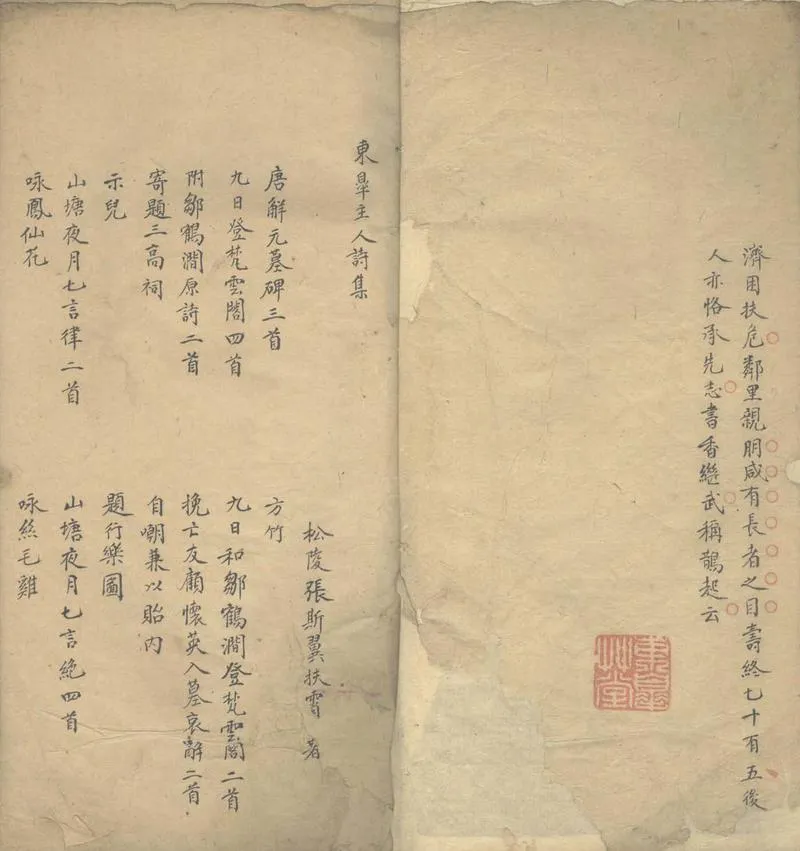 濟困扶危鄰里親朋咸有長者之目壽終七十有五後
人亦恪承先志書香繼武稱鵲起云
東皐草堂
東皐主人詩集
松陵張斯翼扶霄著
唐解元墓碑三首
方竹
九日登梵雲閣四首
九日和鄒鶴澗登梵雲閣二首
附鄒鶴澗原詩二首
挽亡友顧懷英入墓哀辭二首
寄題三高祠
自嘲兼以貽內
示兒
題行樂圖
山塘夜月七言律二首
山塘夜月七言絕四首
咏鳳仙花
咏絲毛雞